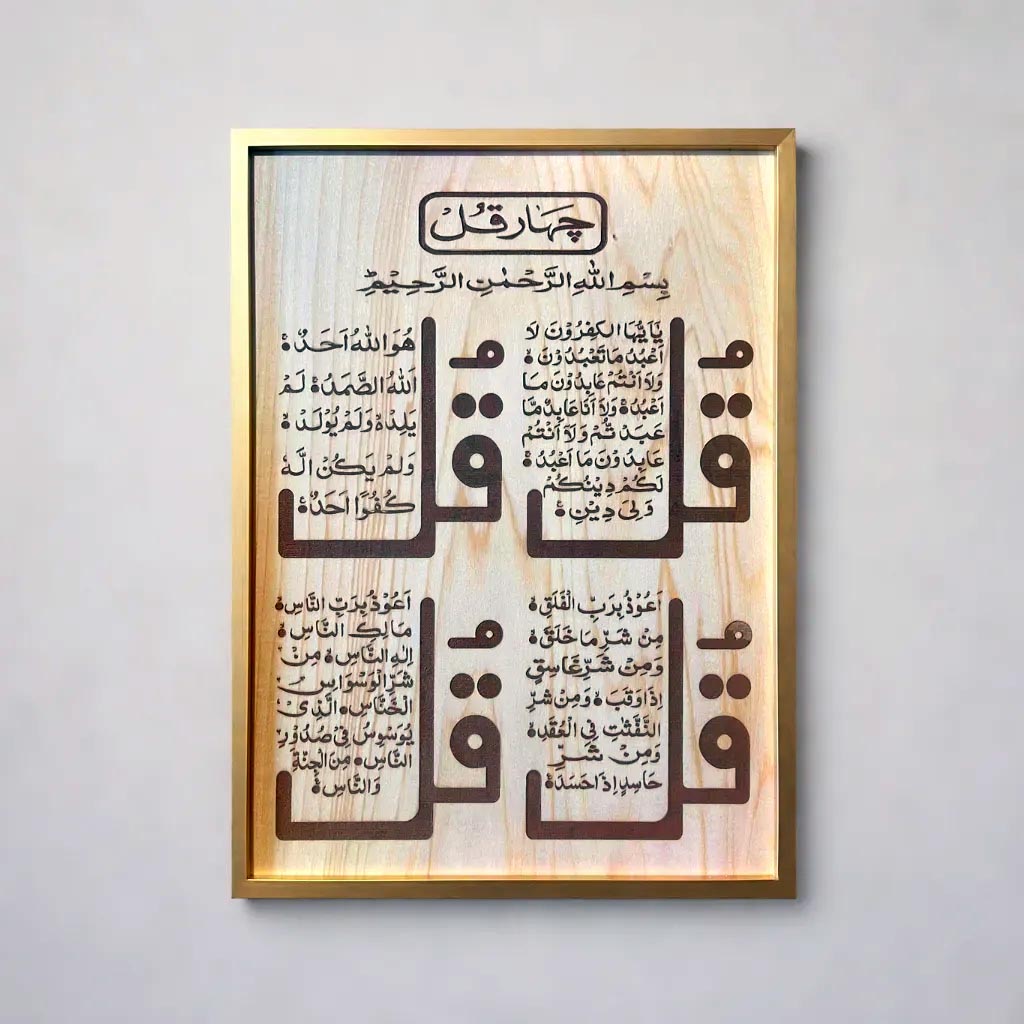 چہار قُلْ
بِسْمِ اللهِ الرَّحْمٰنِ الرَّحِيْمِ
قُل
يٰۤاَيُّهَا الْكٰفِرُوْنَ لَا
اَعْبُدُ مَا تَعْبُدُوْنَ ۝
وَلَا اَنْتُمْ عَابِدُوْنَ مَا
اَعْبُدُ ۝ وَلَا اَنَا عَابِدٌ مَّا
عَبَدْ تُّمْ وَلَا اَنْتُمْ
عَابِدُوْنَ مَا اَعْبُدُ ۝
لَكُمْ دِيْنُكُمْ
وَلِىَ دِيْنِ ۝
قُل
هُوَ اللهُ اَحَدٌ ۝
اَللهُ الصَّمَدُ ۝ لَمْ
يَلِدْ ۝ وَلَمْ يُوْلَدْ ۝
وَلَمْ يَكُنْ لَّهٗ
كُفُوًا اَحَدٌ ۝
قُل
اَعُوْذُ بِرَبِّ الْفَلَقِ ۝
مِنْ شَرِّ مَا خَلَقَ ۝
وَمِنْ شَرِّ غَاسِقٍ
اِذَا وَقَبَ ۝ وَمِنْ شَرِّ
النَّفّٰثٰتِ فِى الْعُقَدِ ۝
وَمِنْ شَرِّ
حَاسِدٍ اِذَا حَسَدَ ۝
قُل
اَعُوْذُ بِرَبِّ النَّاسِ ۝
مَالِكِ النَّاسِ ۝
اِلٰهِ النَّاسِ ۝ مِنْ
شَرِّ الْوَسْوَاسِ
الْخَنَّاسِ ۝ الَّذِىْ
يُوَسْوِسُ فِىْ صُدُوْرِ
النَّاسِ ۝ مِنَ الْجِنَّةِ
وَالنَّاسِ ۝